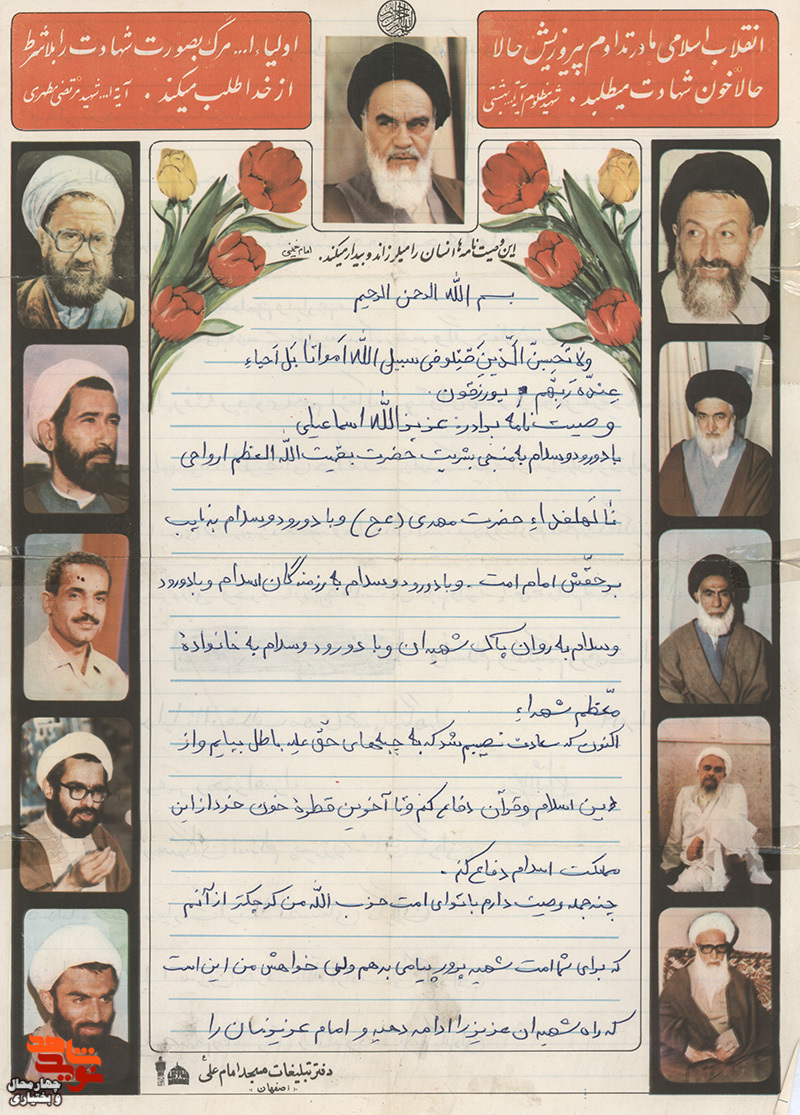 انقلاب اسلامی ما در تداوم پیروزیش حالا
حالا خون شهادت میطلبد . شهید مظلوم آیة ا... بهشتی
اولیاء ا... مرگ بصورت شهادت را بلاشرط
از خدا طلب میکند . آیة ا... شهید مرتضی مطهری
این وصیت نامه ها انسان را میلرزاند و بیدار میکند. امام خمینی
بسم الله الرحمن الرحیم
ولا تحسبنّ الّذین قتلو فی سبیل الله امواتا بل احیاء
عنده ربهّم یورزقون
وصیت نامه برادر: عزیز الله اسماعیلی
با درود و سلام به منجی بشریت حضرت بقیت الله العظم ارواحی
نا لهلفداء حضرت مهدی (عج) و با درود و سلام به نایب
بر حقّش امام امت . و با درود و سلام به رزمندگان اسلام و با درود
و سلام به روان پاک شهیدان و با درود و سلام به خانوادهٔ
معّظم شهداء
اکنون که سعادت نصیبم شد که به جبهه‌های حقّ علیه باطل بیایم و از
دین اسلام و قرآن دفاع کنم و تا آخرین قطرهٔ خون خود از این
مملکت اسلام دفاع کنم .
چند جمله وصیت دارم با تو ای امت حزب الله من کوچکتر از آنم
که برای شما امت شهید پرور پیامی بدهم ولی خواهش من این است
که راه شهیدان عزیز را ادامه دهید و امام عزیزمان را
دفتر تبلیغات مسجد امام علی
اصفهان
نوید شاهد
چهارمحال
و بختیاری